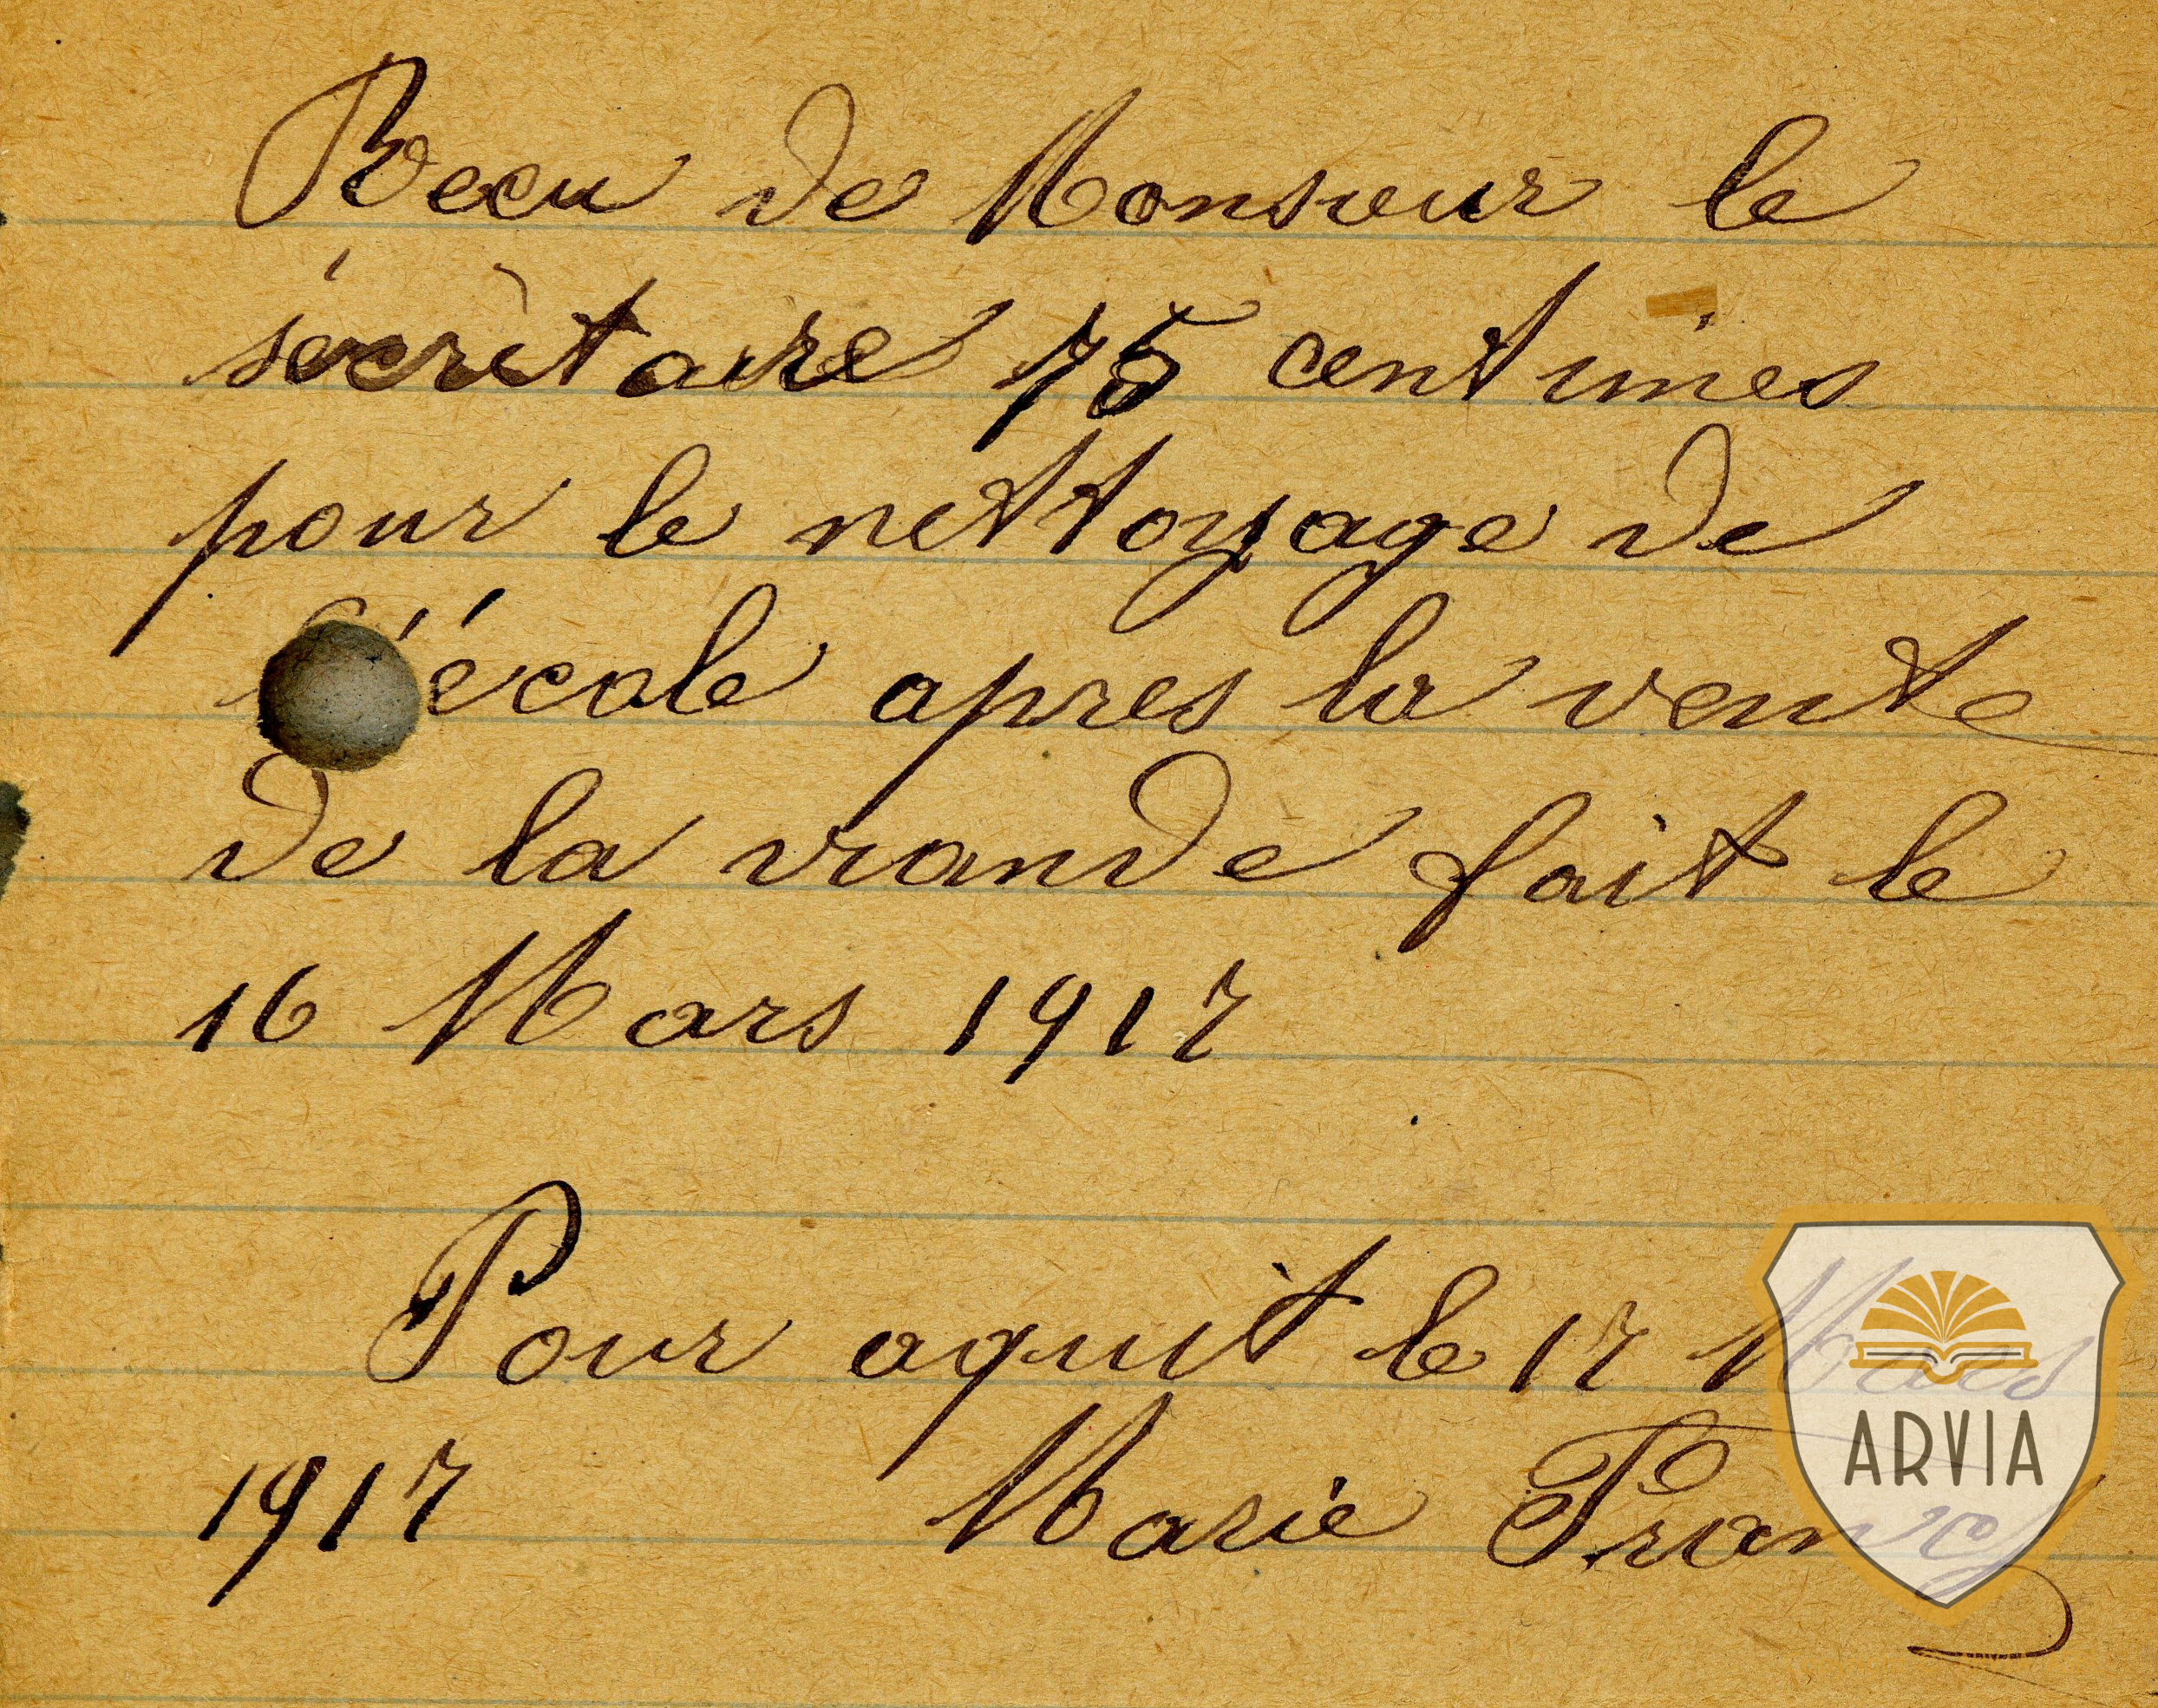 Recu de Monsieur le
sécrètaire 75 centimes
pour le nettoyage de
l'école apres la vente
de la viande fait le
16 Mars 1917
Pour aquit le 17 Mars
1917 Marie
ARVIA